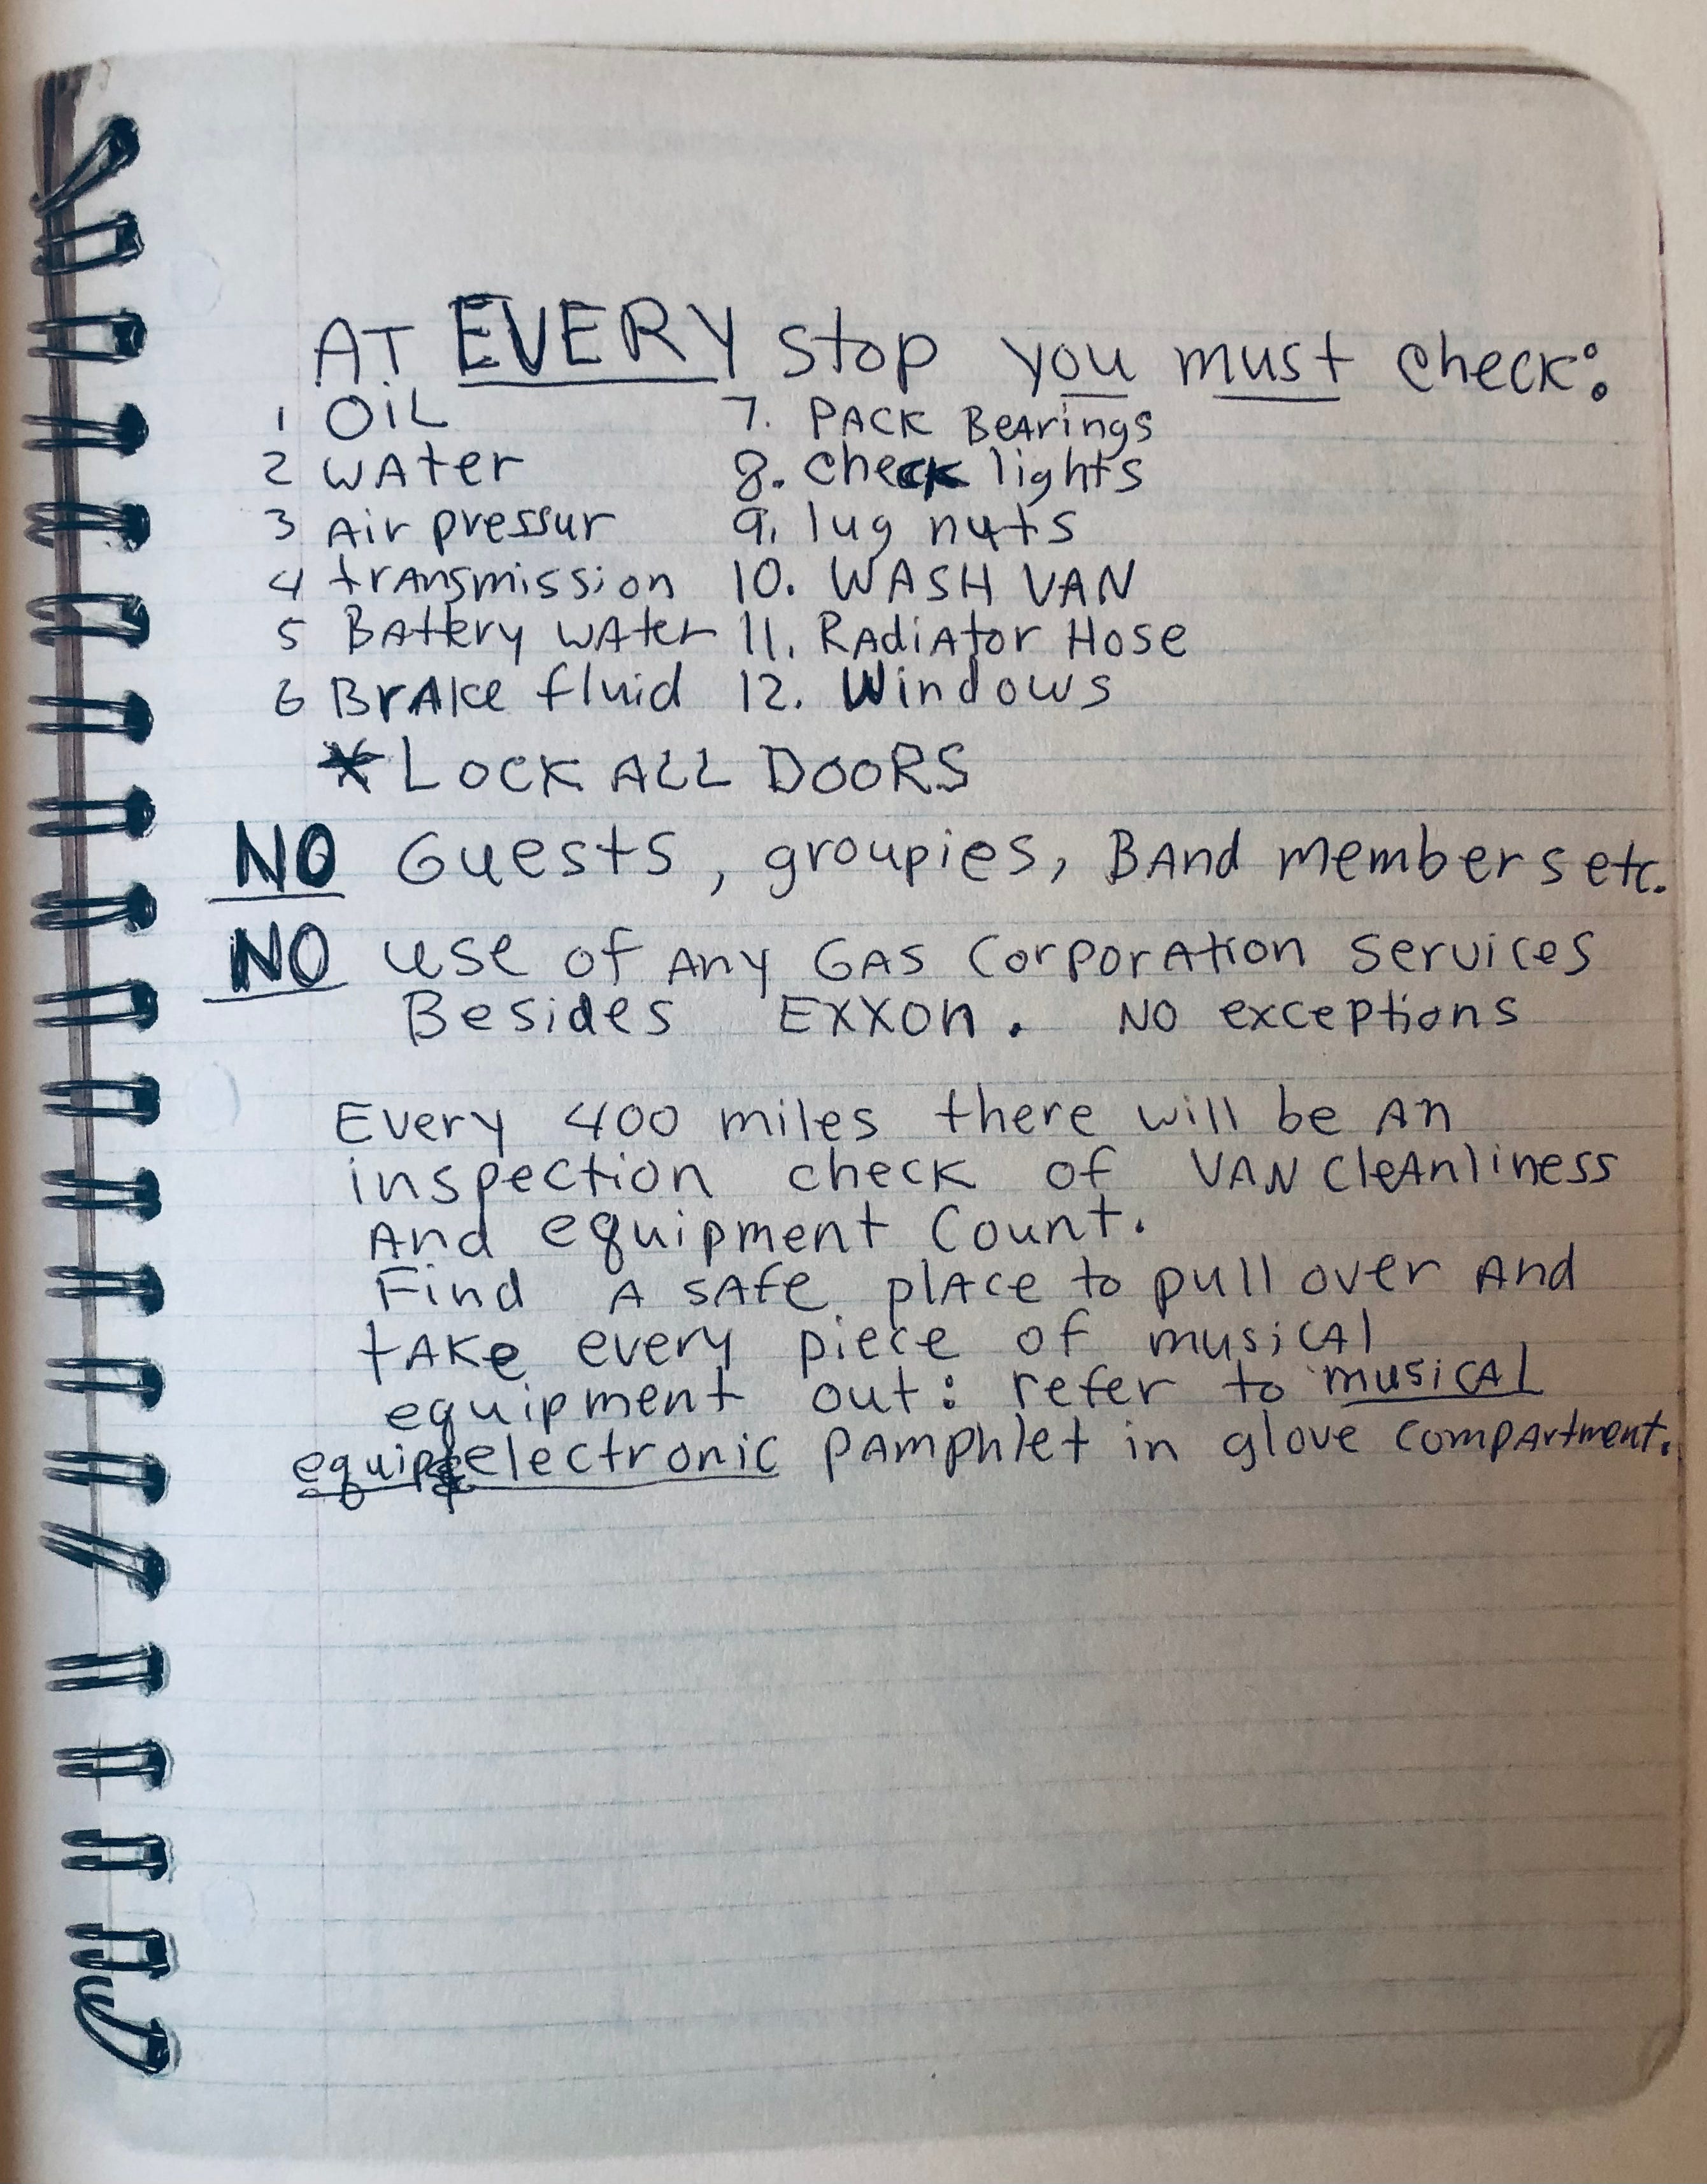 AT EVERY stop you must check:
1 OiL
2 WAter
3 Air pressur
4 trAnsmission
5 BAttery WAter
6 BrAke fluid
7. PACK BeArings
8. check lights
9. lug nuts
10. WASH VAN
11. RAdiAtor Hose
12. Windows
* LOCK ALL DOORS
NO Guests, groupies, BAnd members etc.
NO use of Any GAS CorporAtion Services
Besides EXXOn. NO exceptions
Every 400 miles there will be An
inspection check of VAN CleAnliness
And equipment Count.
Find A sAfe plAce to pull over And
tAKe every piece of musicAl
equipment out: refer to musicAL
equip & electronic pAmphlet in glove compArtment.